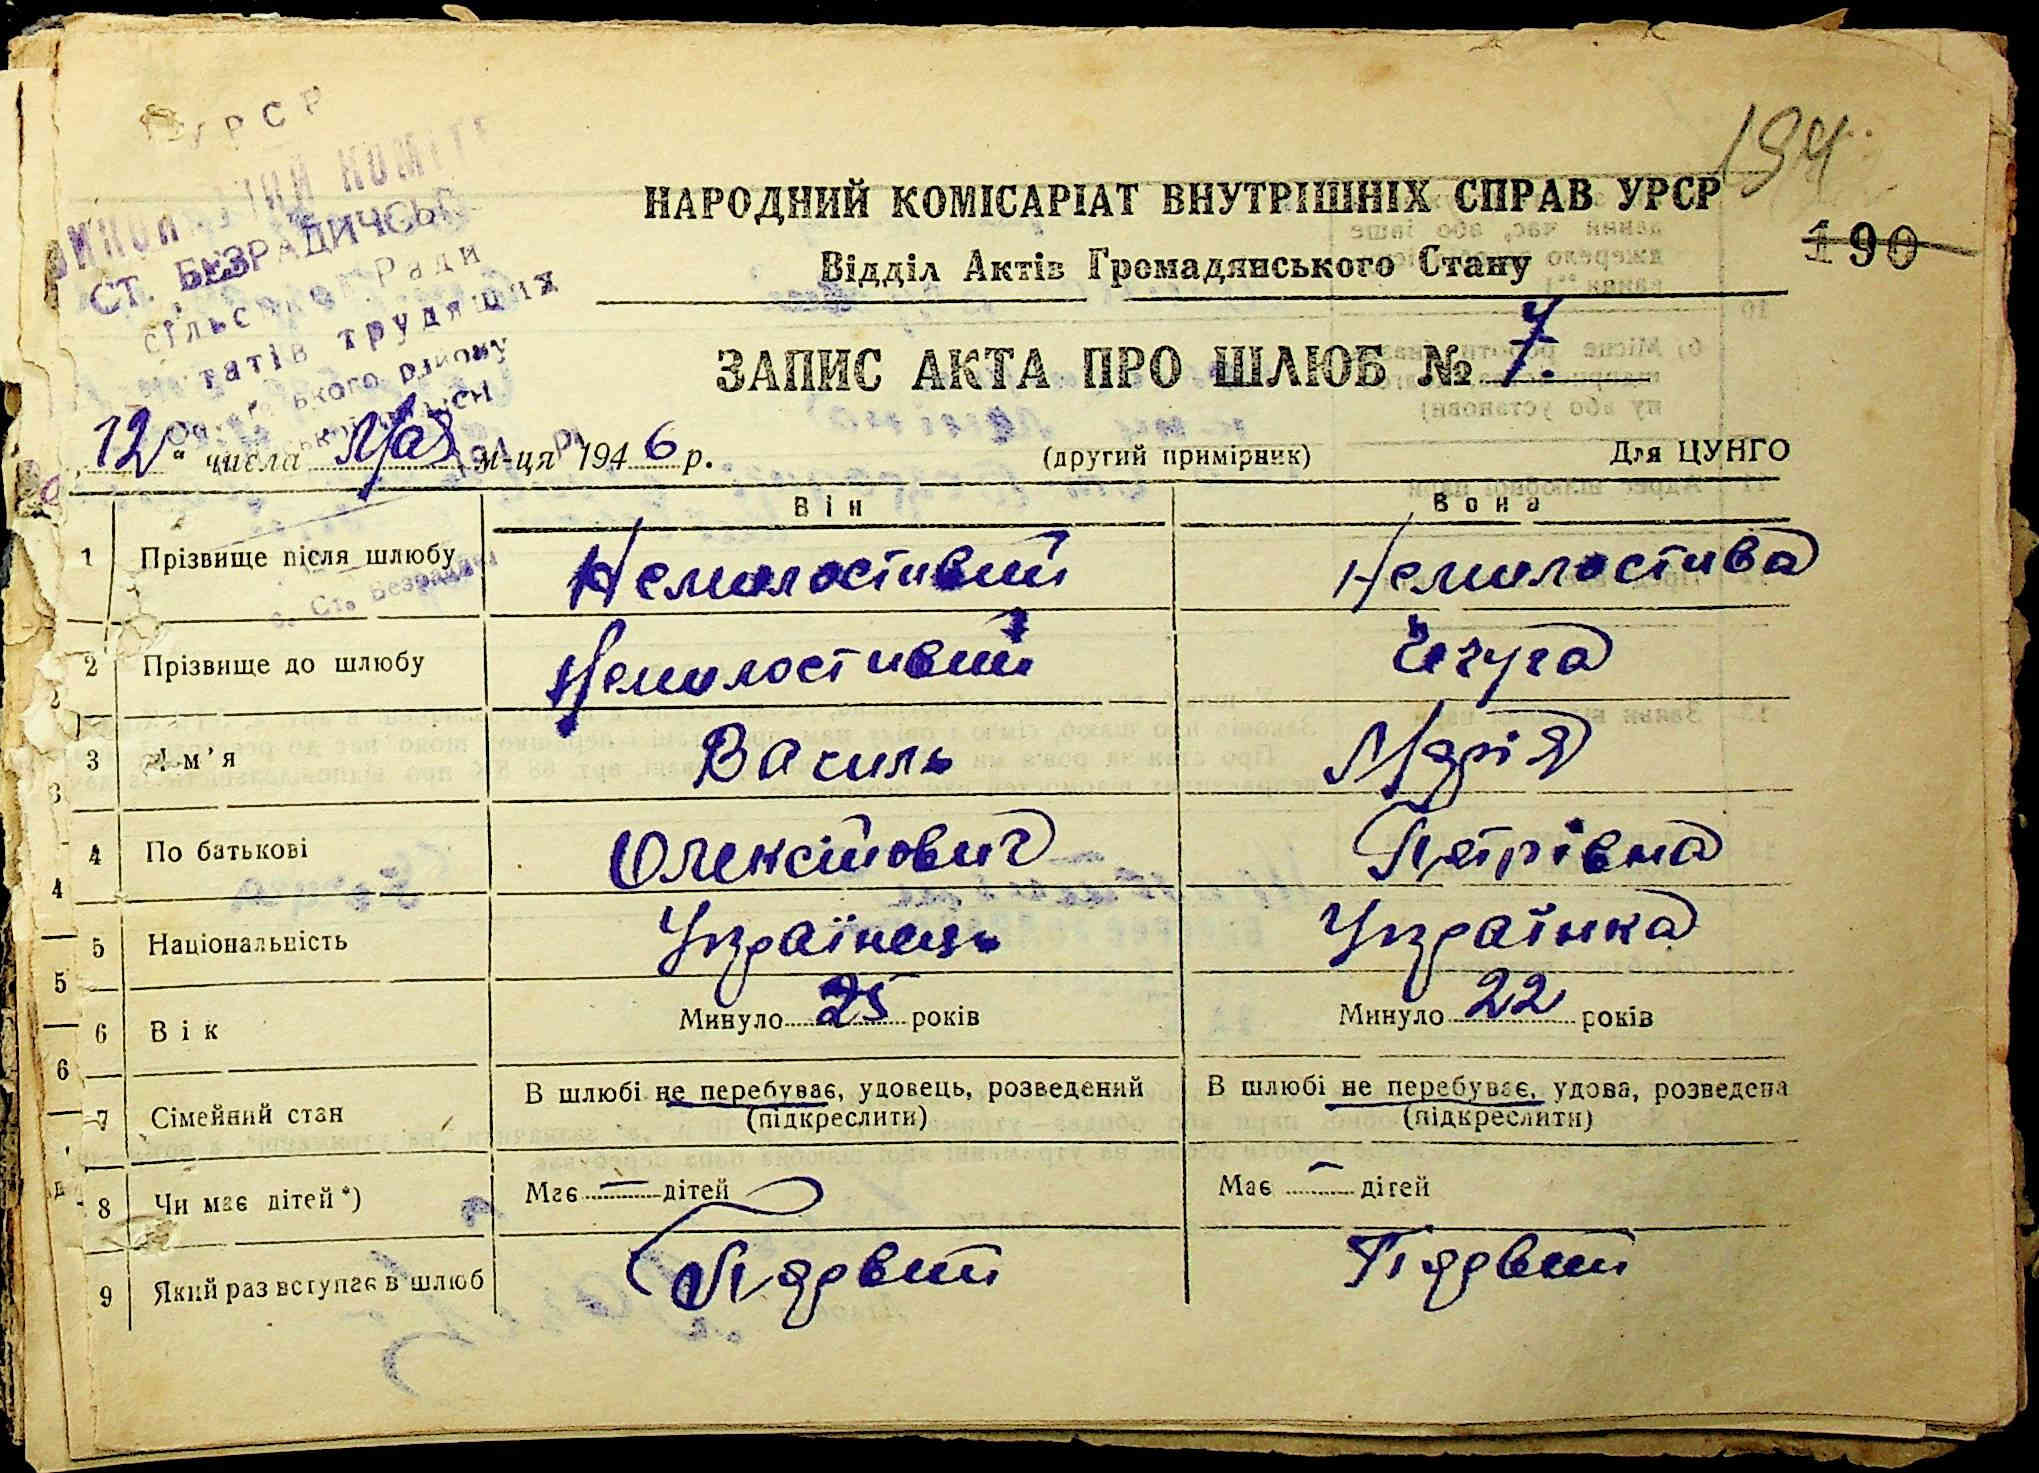 УРСР
ВИКОНАВЧИЙ КОМІТЕ
СТ. БЕЗРАДИЧСЬК
сільської Ради
татів трудящих
ького району
с. Ст. Безрадичі
194
190
НАРОДНИЙ КОМІСАРІАТ ВНУТРІШНІХ СПРАВ УРСР
Відділ Актів Громадянського Стану
ЗАПИС АКТА ПРО ШЛЮБ № 7.
"12" числа Мая м-ця 1946 р. (другий примірник) Для ЦУНГО
Він Вона
1 Прізвище після шлюбу Немилостивий Немилостива
2 Прізвище до шлюбу Немилостивий
3 Ім'я Василь Марія
4 По батькові Олексійович Петрівна
5 Національність Українець Українка
6 Вік Минуло 25 років Минуло 22 років
7 Сімейний стан В шлюбі не перебуває, удовець, розведений В шлюбі не перебуває, удова, розведена
(підкреслити) (підкреслити)
8 Чи має дітей *) Має — дітей Має — дітей
9 Який раз вступає в шлюб Пярвий Пярвий